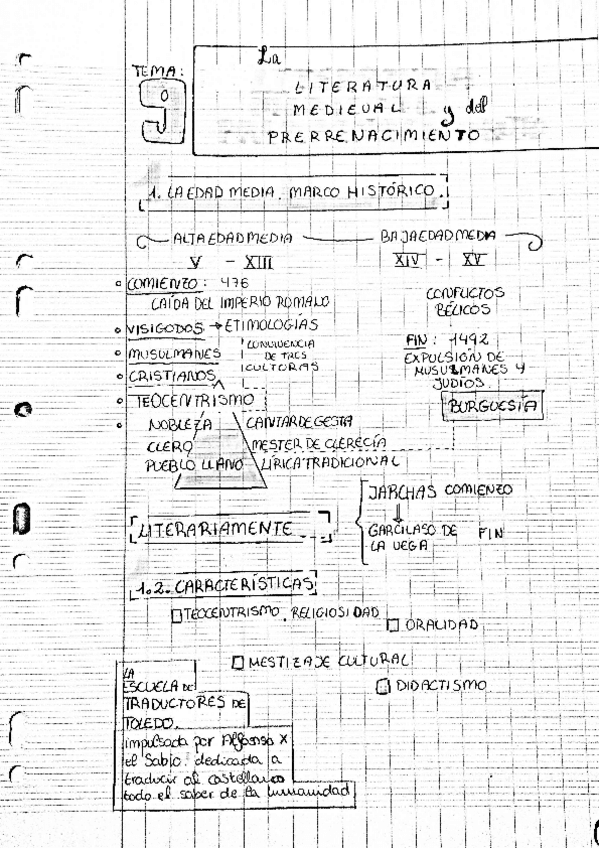 TEMA:
9
La
LITERATURA
MEDIEVAL y del
PRERRENACIMIENTO
1. LA EDAD MEDIA. MARCO HISTÓRICO.
ALTA EDAD MEDIA
V - XIII
BAJA EDAD MEDIA
XIV - XV
COMIENZO: 476
CAÍDA DEL IMPERIO ROMANO
VISIGODOS → ETIMOLOGÍAS
MUSULMANES
CRISTIANOS
CONVIVENCIA
DE TRES
CULTURAS
TEOCENTRISMO
NOBLEZA CANTAR DE GESTA
CLERO MESTER DE CLERECÍA
PUEBLO LLANO LÍRICA TRADICIONAL
CONFLICTOS
BÉLICOS
FIN: 1492
EXPULSIÓN DE
MUSULMANES Y
JUDIOS.
BURGUESÍA
LITERARIAMENTE
JARCHAS COMIENZO
↓
GARCILASO DE FIN
LA VEGA
1.2. CARACTERÍSTICAS
TEOCENTRISMO. RELIGIOSIDAD
ORALIDAD
MESTIZAJE CULTURAL
DIDACTISMO
LA
ESCUELA DE
TRADUCTORES DE
TOLEDO.
impulsada por Alfonso X
el Sabio. dedicada a
traducir al castellano
todo el saber de la humanidad